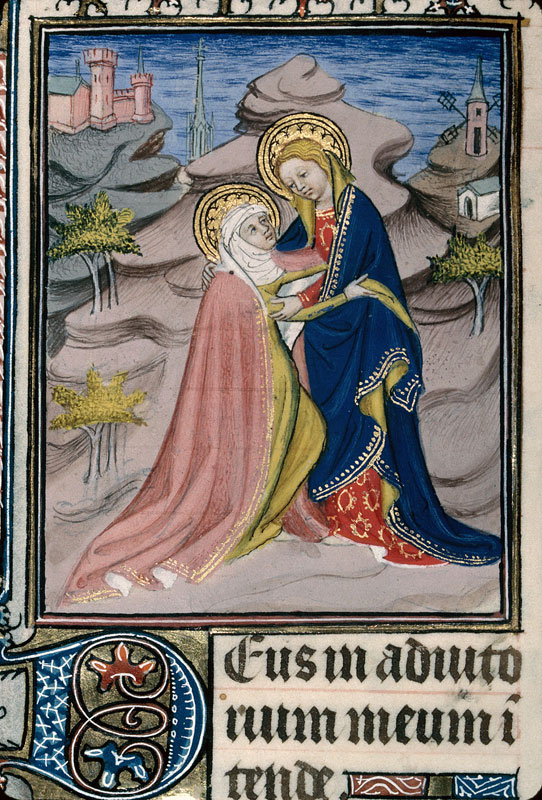 Deus in adiuto
rium meum i
tende